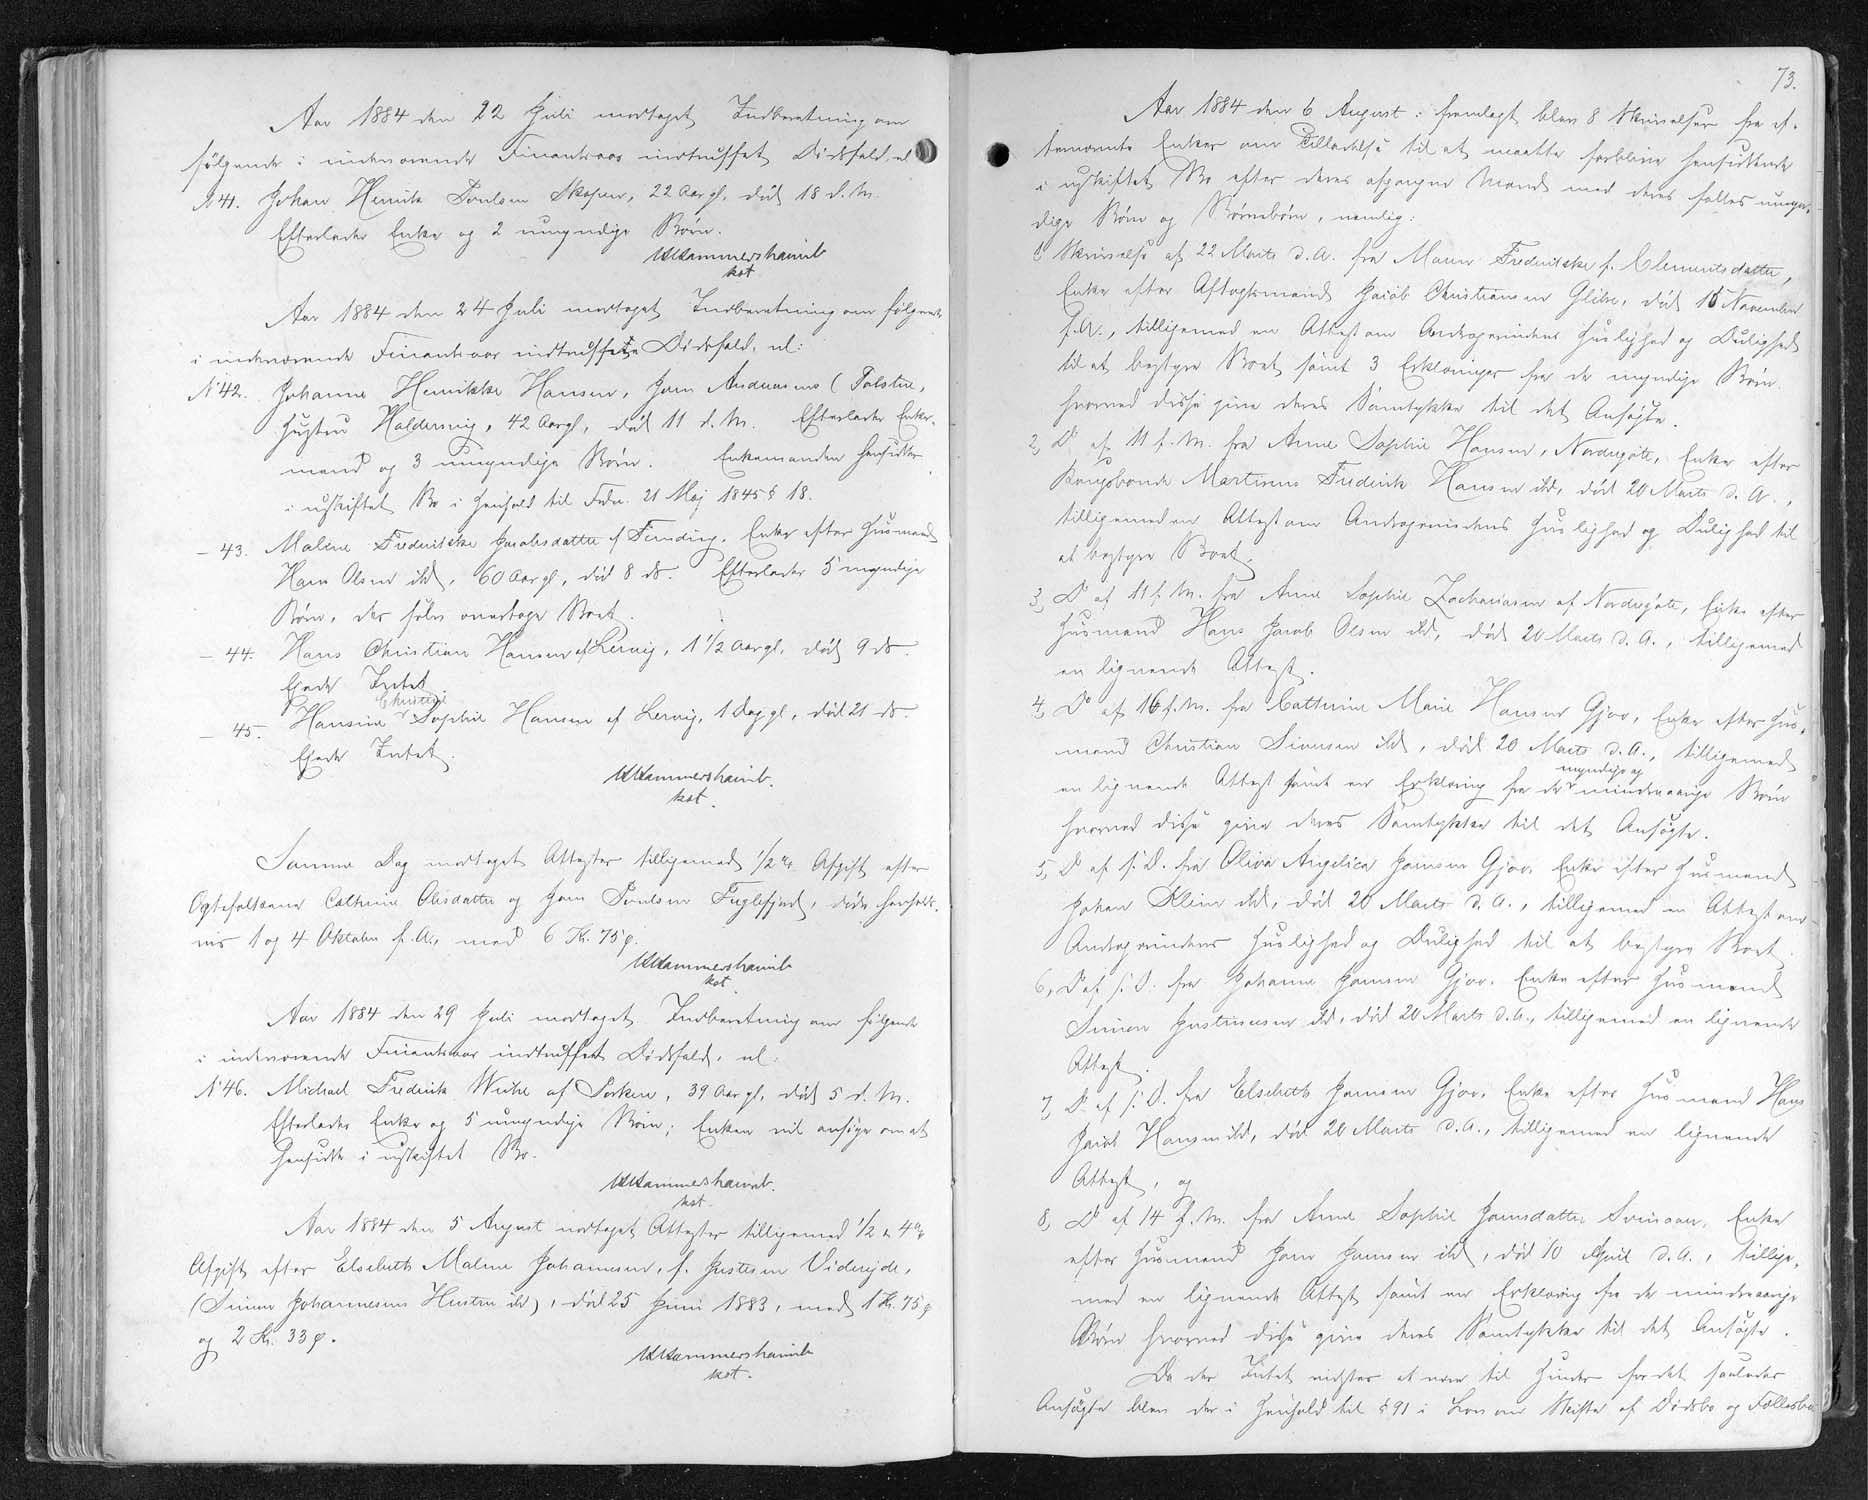 Aar 1884 den 22 Juli modtaget Indberetning om
følgende i indeværende Finantsaar indtruffet Dødsfald, nl
N 41. Johan Henrik Poulsen Skopen, 22 Aar gl. død 18 d. M.
Efterlader Enke og 2 umyndige Børn.
Hammershaimb
kst
Aar 1884 den 24 Juli modtaget Indberetning om følgende
i indeværende Finantsaar indtruffetne Dødsfald, nl:
N 42. Johanne Henrikke Hansen, Joen Andreasens (Tolstru,
Hustru Haldersvig, 42 Aar gl, død 11 d. M. Efterlader Enke-
mand og 3 umyndige Børn. Enkemanden hensidder
i uskiftet Bo i Henhold til Frdn. 21 Maj 1845 § 18.
- 43. Maline Frederikke Jacobsdatter af Funding. Enke efter Husmand
Hans Olsen ibd, 60 Aar gl, død 8 ds. Efterlader 5 myndige
Børn, der selv overtage Boet.
- 44. Hans Christian Hansen af Lervig, 1 1/2 Aar gl. død 9 ds.
Ejede Intet.
Christine
- 45. Hansine Sophie Hansen af Lervig, 1 Dag gl, død 21 ds.
Ejede Intet.
Hammershaimb.
kst.
Samme Dag modtaget Attester tilligemed 1/2 % Afgift efter
Ægtefolkene Cathrine Olesdatter og Joen Poulsen Fuglefjord, døde henholds-
vis 1 og 4 Oktober f. A., med 6 Kr. 75 ø.
Hammershaimb
kst
Aar 1884 den 29 Juli modtaget Indberetning om følgende
i indeværende Finantsaar indtruffet Dødsfald, nl:
N 46. Michael Frederik Weihe af Selker, 39 Aar gl, død 5 d. M.
Efterlader Enke og 5 umyndige Børn; Enken vil ansøge om at
hensidde i uskiftet Bo.
Hammershaimb.
kst.
Aar 1884 den 5 August modtaget Attester tilligemed 1/2 & 4 %
Afgift efter Elsebeth Maline Johannesen, f. Justesen Viderejde,
(Simon Johannesens Hustru ibd), død 25 Juni 1883, med 1 Kr. 75 ø
og 2 Kr. 33 ø.
Hammershaimb
kst.
73.
Aar 1884 den 6 August: fremlagt blev 8 Skrivelser fra ef-
ternævnte Enker om Tilladelse til at maatte forblive hensiddende
i uskiftet Bo efter deres afgangne Mænd med deres fælles umyn-
dige Børn og Børnebørn, nemlig:
1, Skrivelse af 22 Marts d. A. fra Maren Frederikke f. Clementsdatter,
Enke efter Aftægtsmand Jacob Christiansen Glibre, død 15 November
f. A., tilligemed en Attest om Andragerindens Huslighed og Dulighed
til at bestyre Boet samt 3 Erklæringer fra de myndige Børn
hvorved disse give deres Samtykke til det Ansøgte.
2, Do af 11 f. M. fra Anne Sophie Hansen, Nordregøte, Enke efter
Kongsbonde Martinus Frederik Hansen ibd, død 20 Marts d. A.,
tilligemed en Attest om Andragerindens Huslighed og Dulighed til
at bestyre Boet.
3, Do af 11 f. M. fra Anne Sophie Zachariasen af Nordregøte, Enke efter
Husmand Hans Jacob Olsen ibd, død 20 Marts d. A., tilligemed
en lignende Attest.
4, Do af 16 f. M. fra Cathrine Marie Hansen Gjov, Enke efter Hus-
mand Christian Simonsen ibd, død 20 Marts d. A., tilligemed
myndige og
en lignende Attest samt en Erklæring fra de mindreaarige Børn
hvorved disse give deres Samtykke til det Ansøgte.
5, Do af s. D. fra Oliva Angelica Joensen Gjov, Enke efter Husmand
Johan Klein ibd, død 20 Marts d. A., tilligemed en Attest om
Andragerindens Huslighed og Dulighed til at bestyre Boet.
6, Do af s. D. fra Johanne Joensen Gjov, Enke efter Husmand
Simon Justinussen ibd, død 20 Marts d. A., tilligemed en lignende
Attest.
7, Do af s. D. fra Elsebeth Joensen Gjov, Enke efter Husmand Hans
Jacob Hansen ibd, død 20 Marts d. A., tilligemed en lignende
Attest, og
8, Do af 14 f. M. fra Anne Sophie Joensdatter Svinaar, Enke
efter Husmand Joen Joensen ibd, død 10 April d. A., tillige-
med en lignende Attest samt en Erklæring fra de mindreaarige
Børn hvorved disse give deres Samtykke til det Ansøgte.
Da der Intet vidstes at være til Hinder for det saaledes
Ansøgte blev der i Henhold til § 91 i Lov om Skifte af Dødsbo og Fællesbo